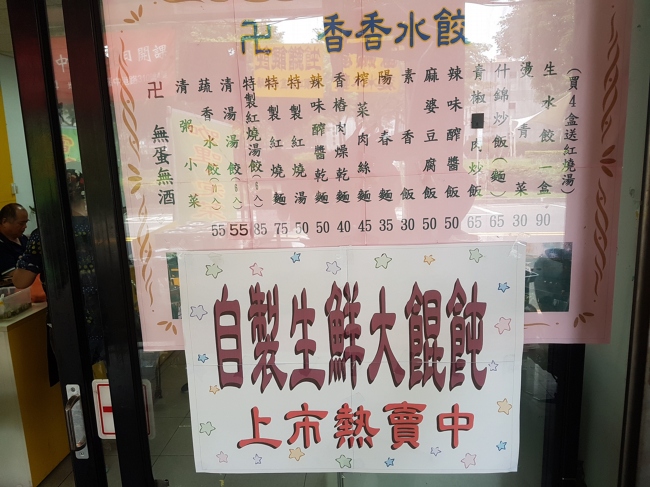 卍 香香水餃
(買4盒送紅燒湯)
生水餃一盒 90
燙青菜 30
什錦炒飯(麵) 65
青椒■肉炒飯 65
辣味醡醬飯 50
麻婆豆腐飯 50
素香飯 30
陽春麵 35
榨菜肉絲麵 45
香椿肉燥乾麵 40
辣味醡醬乾麵 50
特製紅燒湯 50
特製紅燒麵 75
特製紅燒湯餃(8入) 85
清湯湯餃(8入) 55
蔬香水餃(8入) 55
清粥小菜
卍 無蛋無酒
自製生鮮大餛飩
上市熱賣中